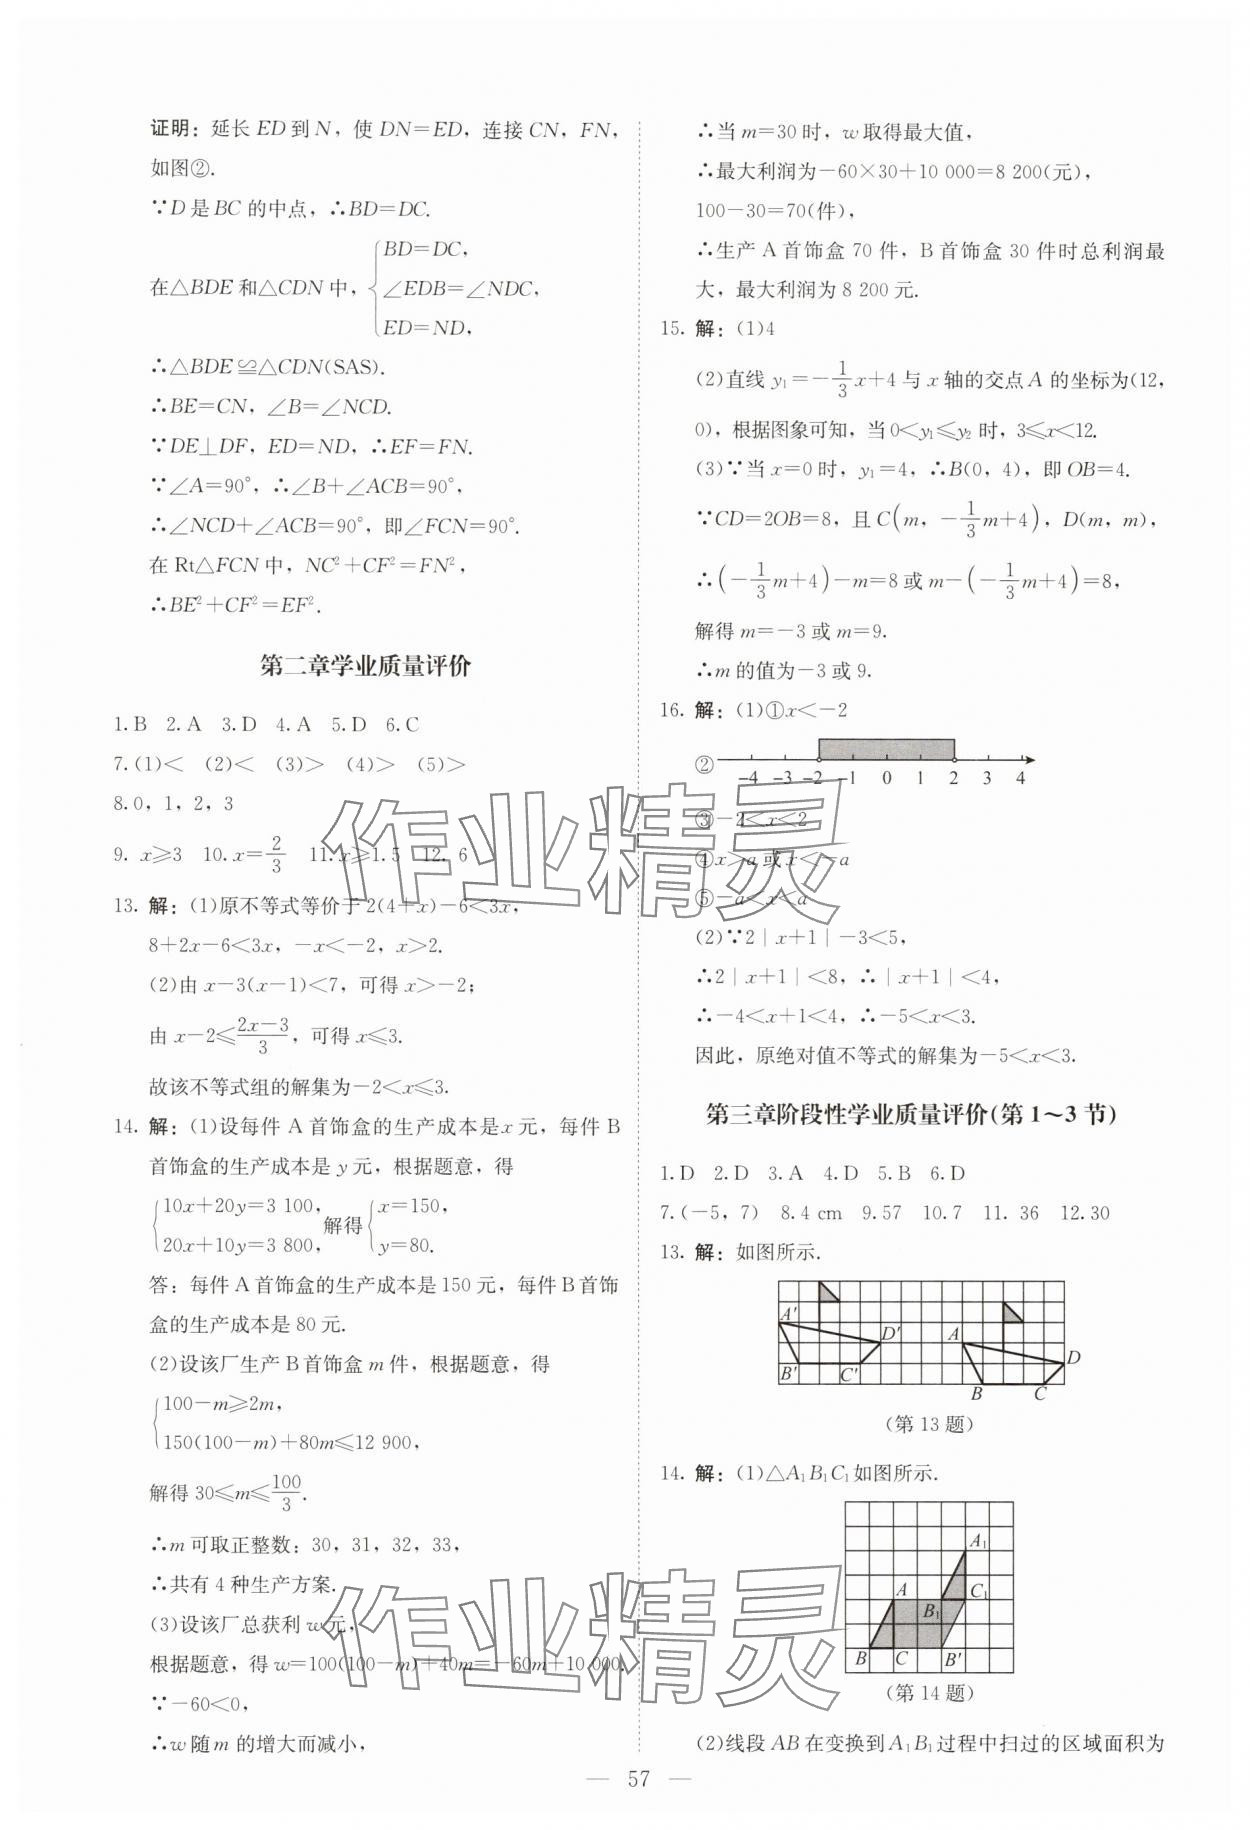 证明：延长ED到N，使DN=ED，连接CN，FN，
如图②.
∵D是BC的中点，∴BD=DC.
在△BDE和△CDN中，{BD=DC，
∠EDB=∠NDC，
ED=ND，
∴△BDE≌△CDN(SAS).
∴BE=CN，∠B=∠NCD.
∵DE⊥DF，ED=ND，∴EF=FN.
∵∠A=90°，∴∠B+∠ACB=90°，
∴∠NCD+∠ACB=90°，即∠FCN=90°.
在Rt△FCN中，NC²+CF²=FN²，
∴BE²+CF²=EF².
第二章学业质量评价
1.B 2.A 3.D 4.A 5.D 6.C
7.(1)< (2)< (3)> (4)> (5)>
8.0，1，2，3
9. x≥3 10.x=2/3 11.x≥1.5 12. 6
13. 解：(1)原不等式等价于2(4+x)-6<3x，
8+2x-6<3x，-x<-2，x>2.
(2)由x-3(x-1)<7，可得x>-2；
由x-2≤(2x-3)/3，可得x≤3.
故该不等式组的解集为-2<x≤3.
14. 解：(1)设每件A首饰盒的生产成本是x元，每件B
首饰盒的生产成本是y元，根据题意，得
{10x+20y=3 100，20x+10y=3 800，解得{x=150，y=80.
答：每件A首饰盒的生产成本是150元，每件B首饰
盒的生产成本是80元.
(2)设该厂生产B首饰盒m件，根据题意，得
{100-m≥2m，
150(100-m)+80m≤12 900，
解得30≤m≤100/3.
∴m可取正整数：30，31，32，33，
∴共有4种生产方案.
(3)设该厂总获利w元，
根据题意，得w=100(100-m)+40m=-60m+10 000.
∵-60<0，
∴w随m的增大而减小，
∴当m=30时，w取得最大值，
∴最大利润为-60×30+10 000=8 200(元)，
100-30=70(件)，
∴生产A首饰盒70件，B首饰盒30件时总利润最
大，最大利润为8 200元.
15. 解：(1)4
(2)直线y₁=-1/3x+4与x轴的交点A的坐标为(12，
0)，根据图象可知，当0<y₁≤y₂时，3≤x<12.
(3)∵当x=0时，y₁=4，∴B(0，4)，即OB=4.
∵CD=2OB=8，且C(m，-1/3m+4)，D(m，m)，
∴(-1/3m+4)-m=8或m-(-1/3m+4)=8，
解得m=-3或m=9.
∴m的值为-3或9.
16. 解：(1)①x<-2
② -4 -3 -2 -1 0 1 2 3 4
③-2<x<2
④x>a或x<-a
⑤-a<x<a
(2)∵2|x+1|-3<5，
∴2|x+1|<8，∴|x+1|<4，
∴-4<x+1<4，∴-5<x<3.
因此，原绝对值不等式的解集为-5<x<3.
第三章阶段性学业质量评价(第1～3节)
1.D 2.D 3.A 4.D 5.B 6.D
7.(-5，7) 8.4 cm 9.57 10.7 11. 36 12.30
13. 解：如图所示.
A′ D′ A D
B′ C′ B C
(第13题)
14. 解：(1)△A₁B₁C₁如图所示.
A₁
A B₁ C₁
B C B′
(第14题)
(2)线段AB在变换到A₁B₁过程中扫过的区域面积为
57
作业精灵
作业精灵